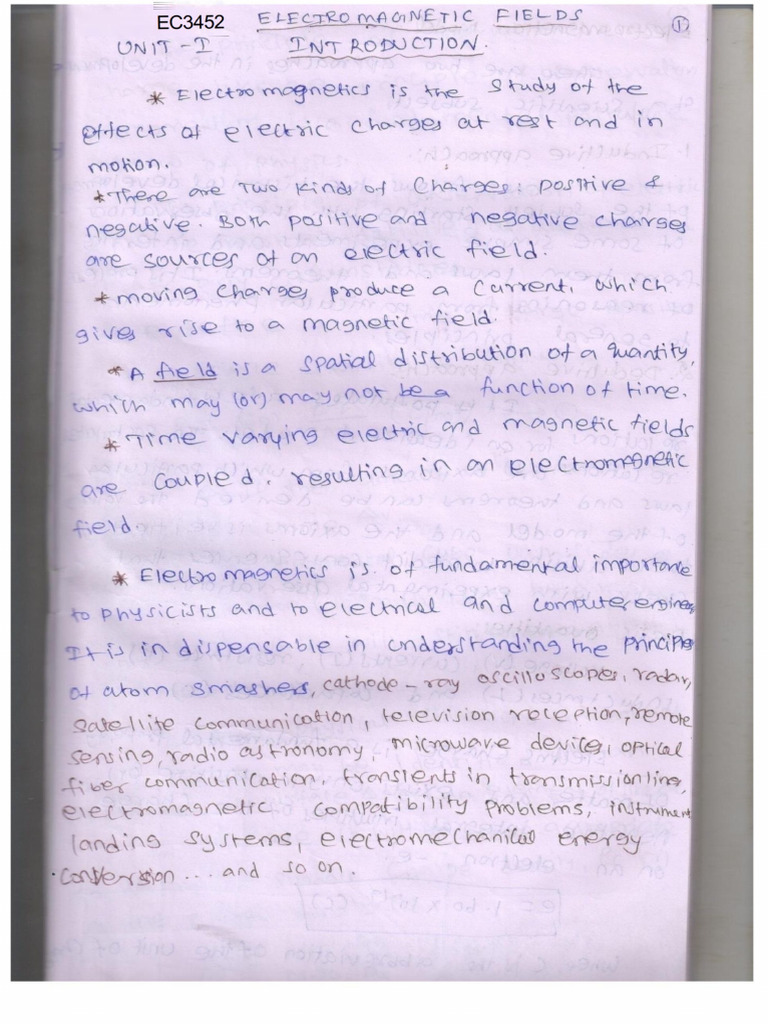 EC3452 ELECTROMAGNETIC FIELDS ①
UNIT-I INTRODUCTION.
* Electromagnetics is the study of the
effects of electric charges at rest and in
motion.
* There are Two kinds of charges: positive &
negative. Both positive and negative charges
are sources of an electric field.
* moving charges produce a current, which
gives rise to a magnetic field.
* A field is a spatial distribution of a quantity,
which may (or) may not be a function of time.
* Time varying electric and magnetic fields
are coupled, resulting in an electromagnetic
field.
* Electromagnetics is of fundamental importance
to physicists and to electrical and computer engineers
It is in dispensable in understanding the principles
of atom smashers, cathode-ray oscilloscopes, radar,
satellite communication, television reception, remote
sensing, radio astronomy, microwave devices, optical
fiber communication, transients in transmission line,
electromagnetic compatibility problems, instrument
landing systems, electromechanical energy
conversion... and so on.